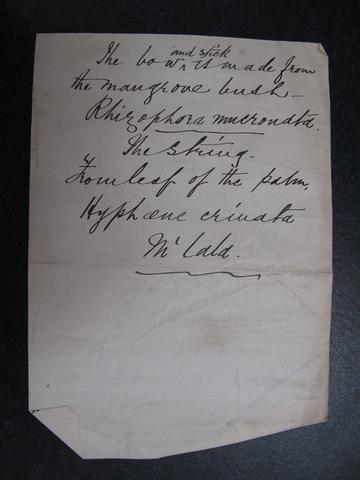 The bow and stick is made from
the mangrove bush —
Rhizophora mucronata.
The String.
From leaf of the palm,
Hyphæne crinata
M' Lala.